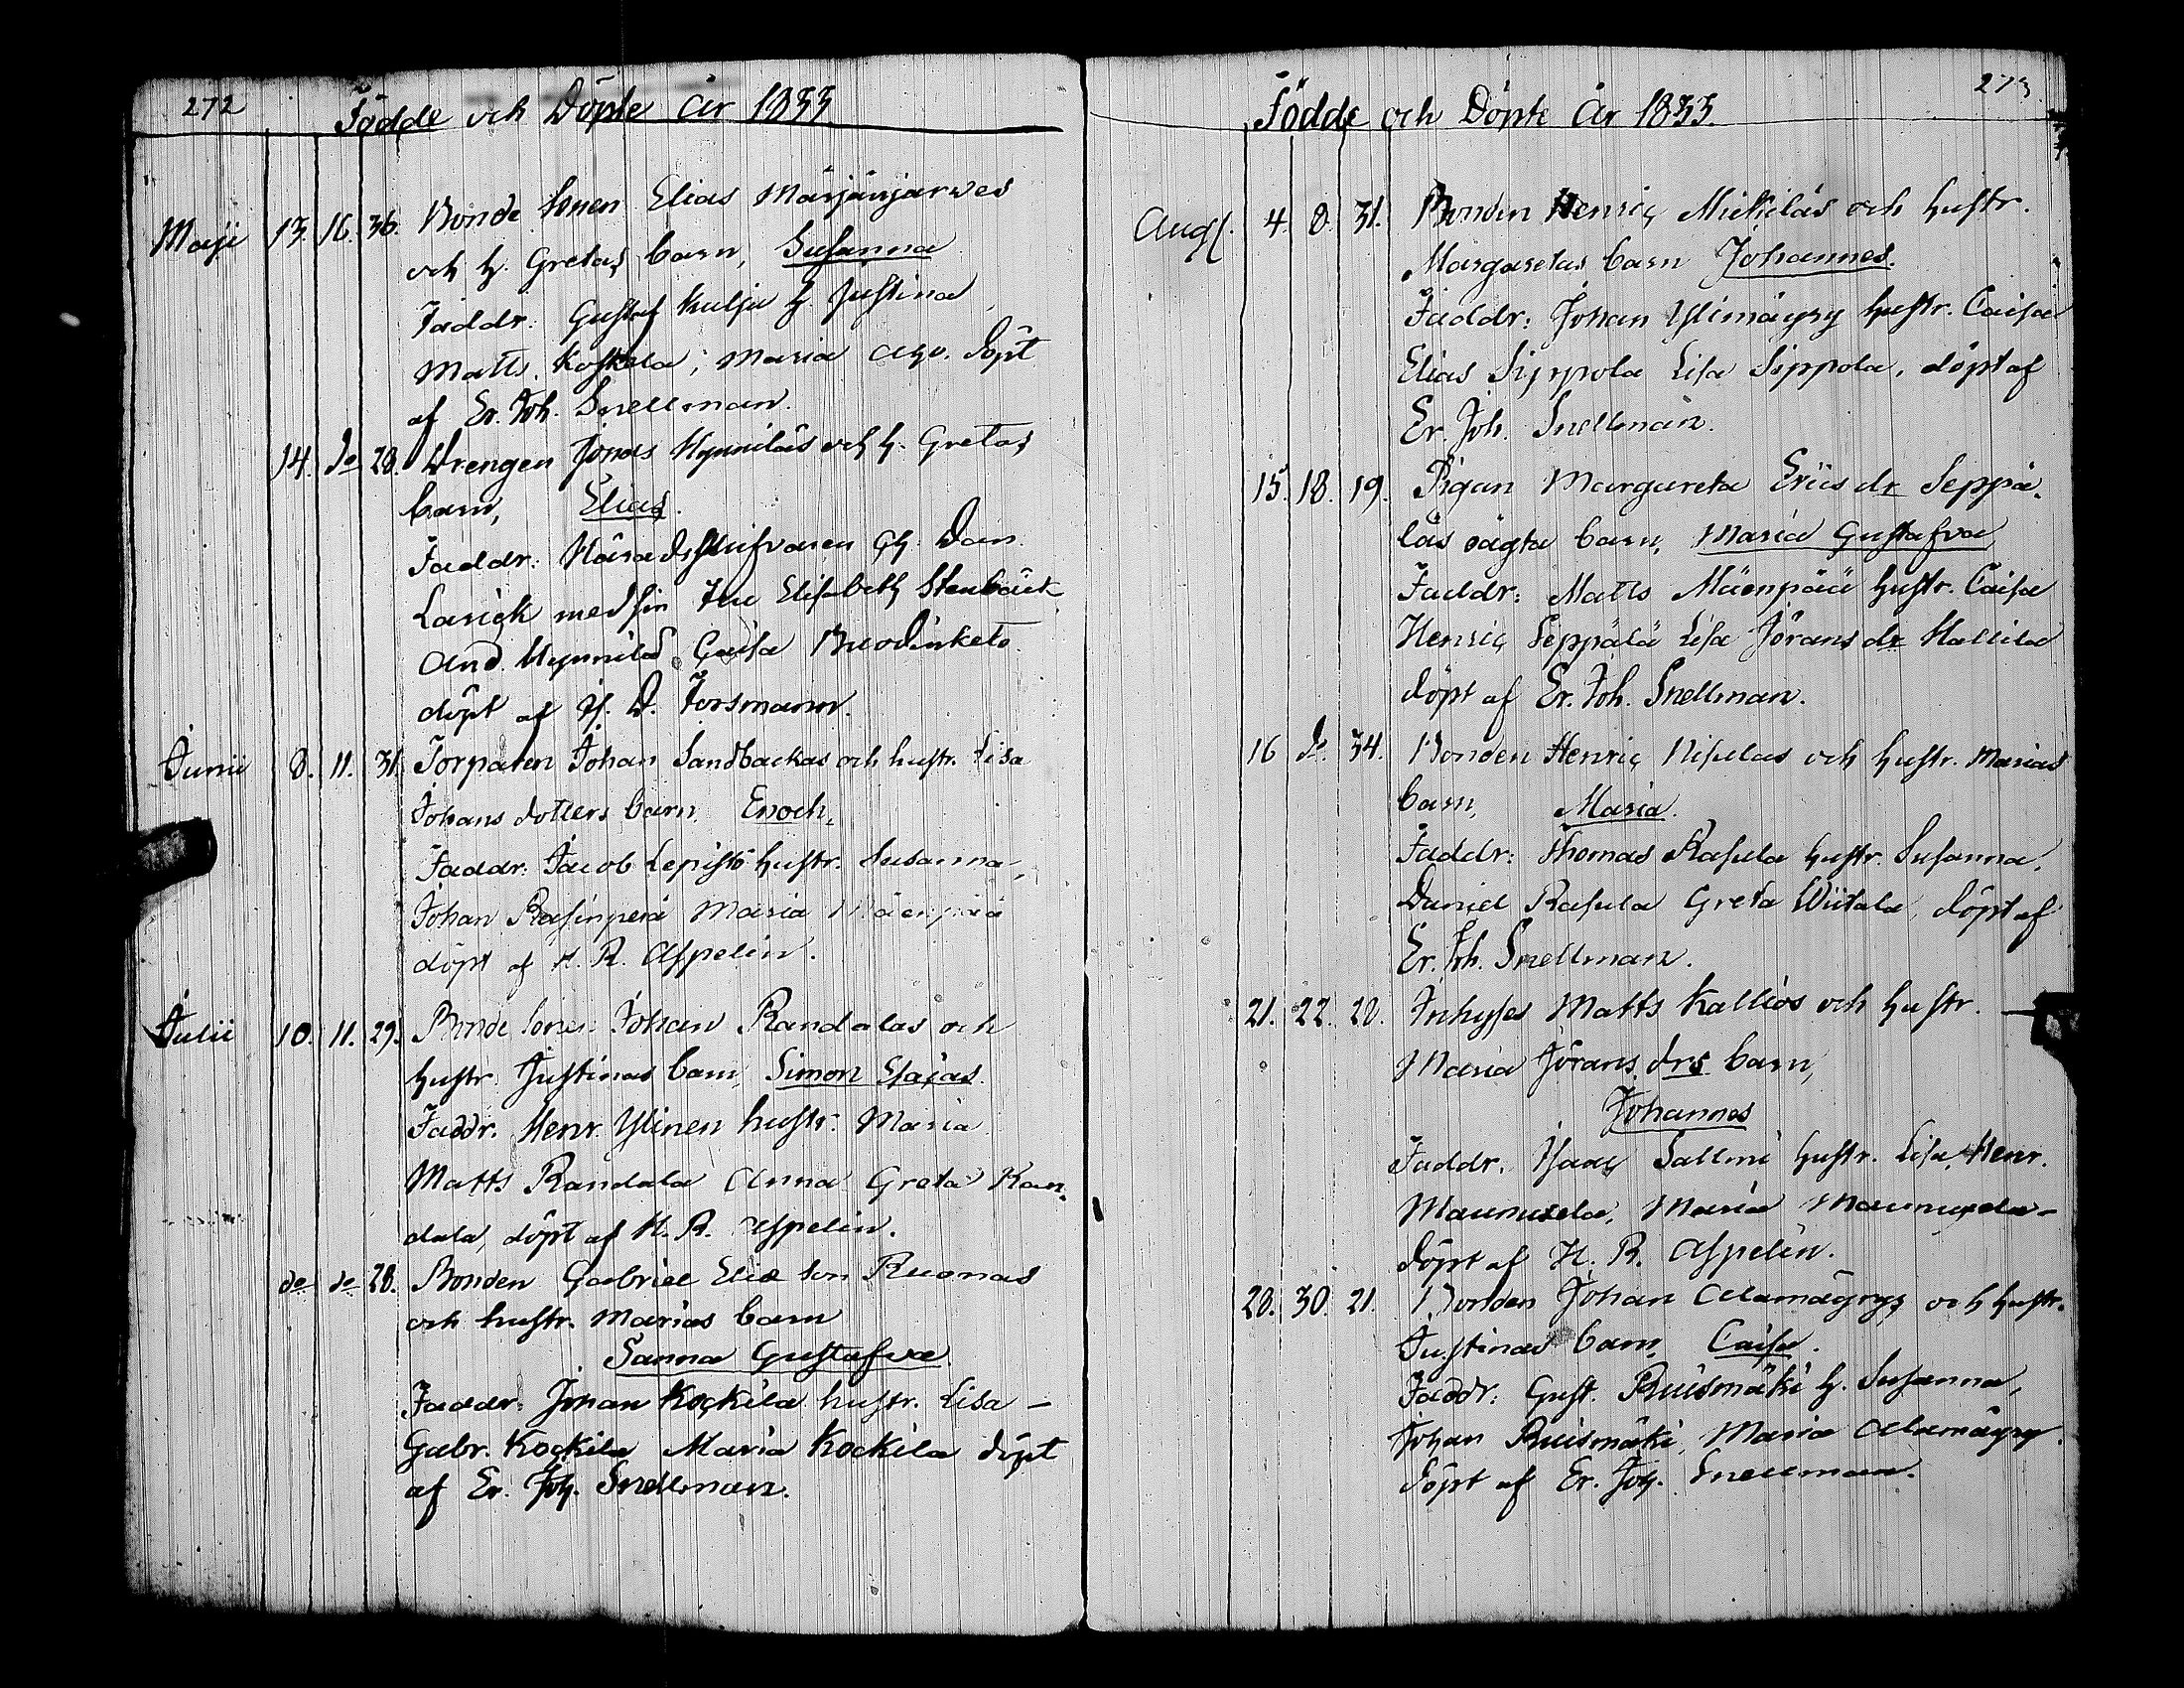 272
Födde och Döpte År 1833
Maji 13. 16. 36. Bonde Sonen Elias Märjänjärwes
och h. Gretas barn, Susanna
Faddr: Gustaf Kulju h. Justina
Matts Koskela; Maria döpt
af Er. Joh. Snellman.
14. do 28. Drengen Jonas Hynniläs och h. Gretas
barn, Elias.
Faddr: Häradsskrifvaren Dan.
Larick med sin Fru Elisabeth Stenbäck
And. Hynnilä Caisa
döpt af J. D. Forsmann.
Junii 8. 11. 31. Torparen Johan Sandbackas och hustr. Lisa
Johans dotters barn, Enoch,
Faddr: Jacob Lepistö hustr. Susanna,
Johan Rasinperä Maria Mäenpää
döpt af H. R. Aspelin.
Julii 10. 11. 29. Bonde Sonen Johan Randalas och
hustr. Justinas barn, Simon Esaias.
Faddr. Henr. Ylinen hustr. Maria
Matts Randala Anna Greta Ran,
dala, döpt af H. R. Aspelin.
do do 28. Bonden Gabriel Eliæ Son Ruonas
och hustr. Marias barn
Sanna Gustafva
Faddr: Johan Kockila hustr. Lisa –
Gabr. Kockila Maria Kockila döpt
af Er. Joh. Snellman.
273
Födde och Döpte År 1833.
Aug. 4. 8. 31. Bonden Henric Mickiläs och hustr.
Margaretas barn Johannes.
Faddr: Johan Ylimäyry hustr. Caisa
Elias Sippola Lisa Sippola, döpt af
Er. Joh. Snellman.
15. 18. 19. Pigan Margareta Erics dr Seppä,
läs oägta barn, Maria Gustafva
Faddr: Matts Mäenpää hustr. Caisa
Henric Seppälä Lisa Jörans dr Hallila
döpt af Er. Joh. Snellman.
16 do. 34. Bonden Henric Nisulas och hustr. Marias
barn, Maria.
Faddr: Thomas Rasula hustr. Susanna,
Daniel Rasula Greta Wiitala, döpt af
Er. Joh. Snellman.
21. 22. 28. Inhyses Matts Kallios och hustr.
Maria Jörans drs barn,
Johannes
Faddr. Isaac Sallmi hustr. Lisa, Henr.
Maunuxela, Maria Maunuxela –
döpt af H. R. Aspelin.
28. 30. 21. Bonden Johan Alamäyrys och hustr.
Justinas barn, Caisa.
Faddr: Gust. Ruismäki h. Susanna,
Johan Ruismäki, Maria Alamäyry
döpt af Er. Joh. Snellman.